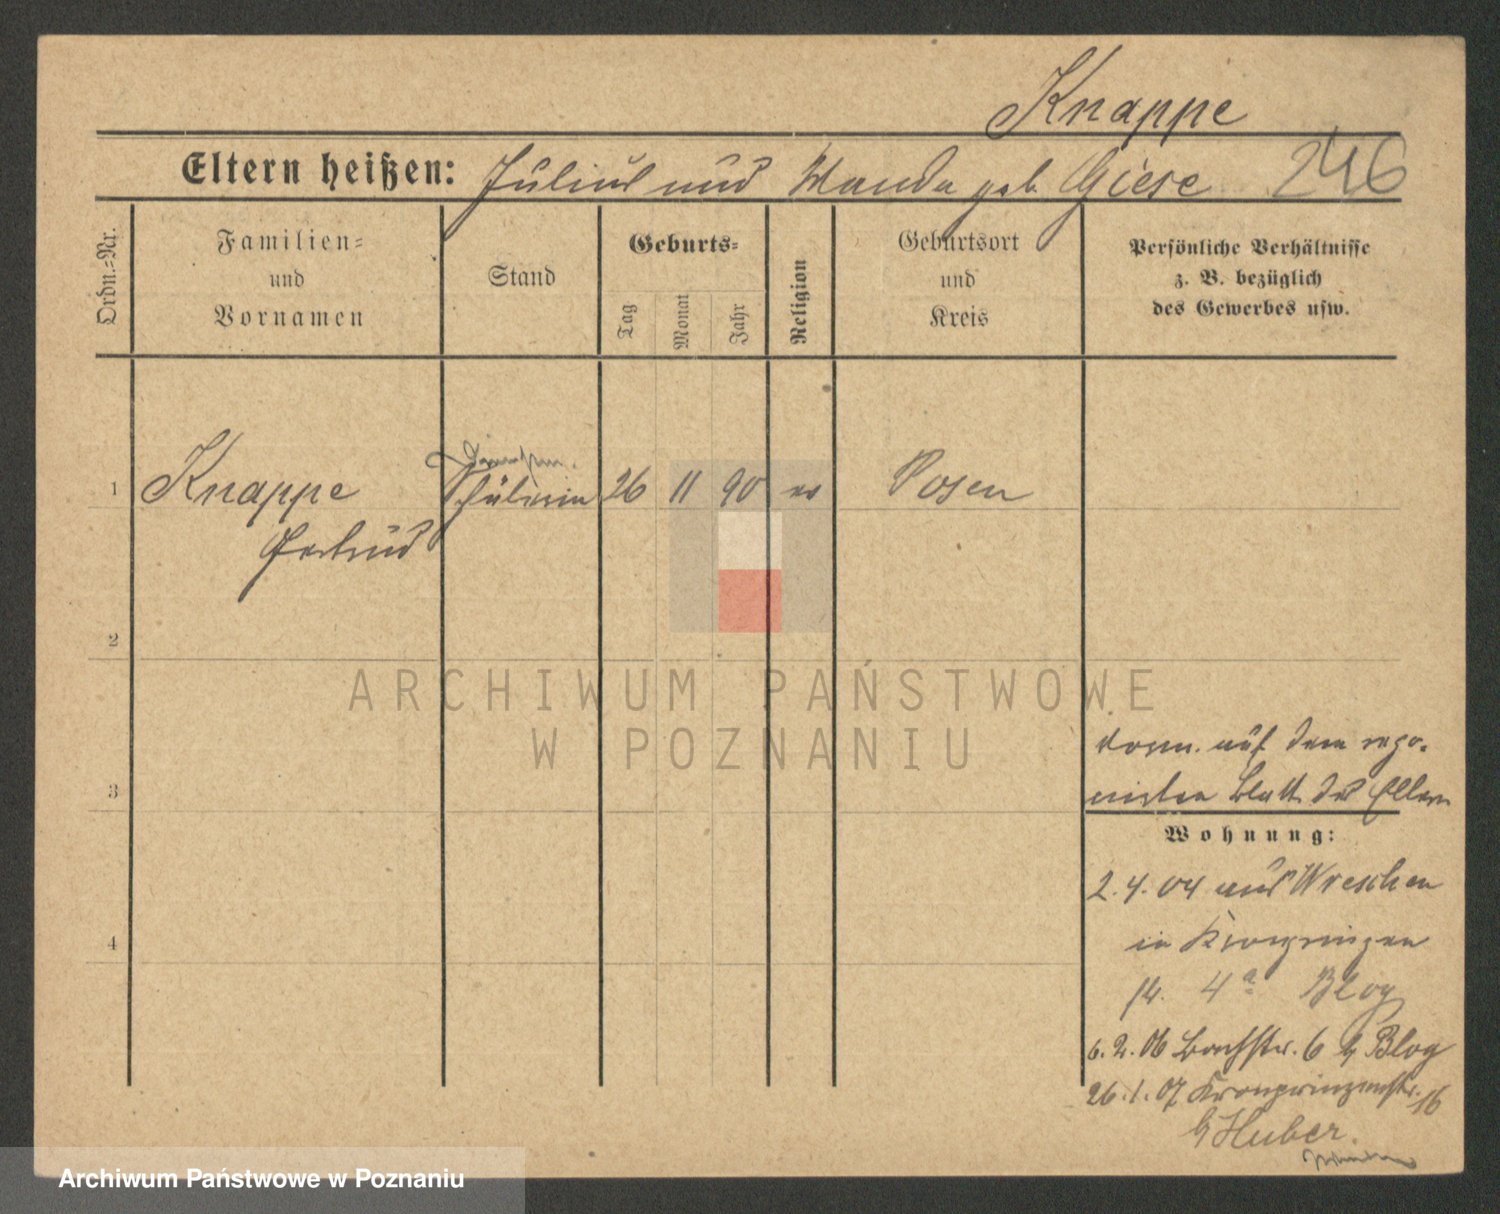 Knappe
Eltern heißen: Julius und Wanda geb. Giese 246
Ordn.-Nr.
Familien-
und
Vornamen
Stand
Geburts-
Tag
Monat
Jahr
Religion
Geburtsort
und
Kreis
Persönliche Verhältnisse
z. B. bezüglich
des Gewerbes usw.
1 Knappe Schülerin 26 11 90 ev Posen
Gertrud
2
3
4
auf dem
Blatt der Eltern
Wohnung:
2.4.04 aus Wreschen
in Kronprinzen
str. 4a Bloy
6.2.06 Bachstr. 6 b/ Bloy
26.1.07 Kronprinzenstr. 16
b/ Huber.
ARCHIWUM PAŃSTWOWE
W POZNANIU
Archiwum Państwowe w Poznaniu